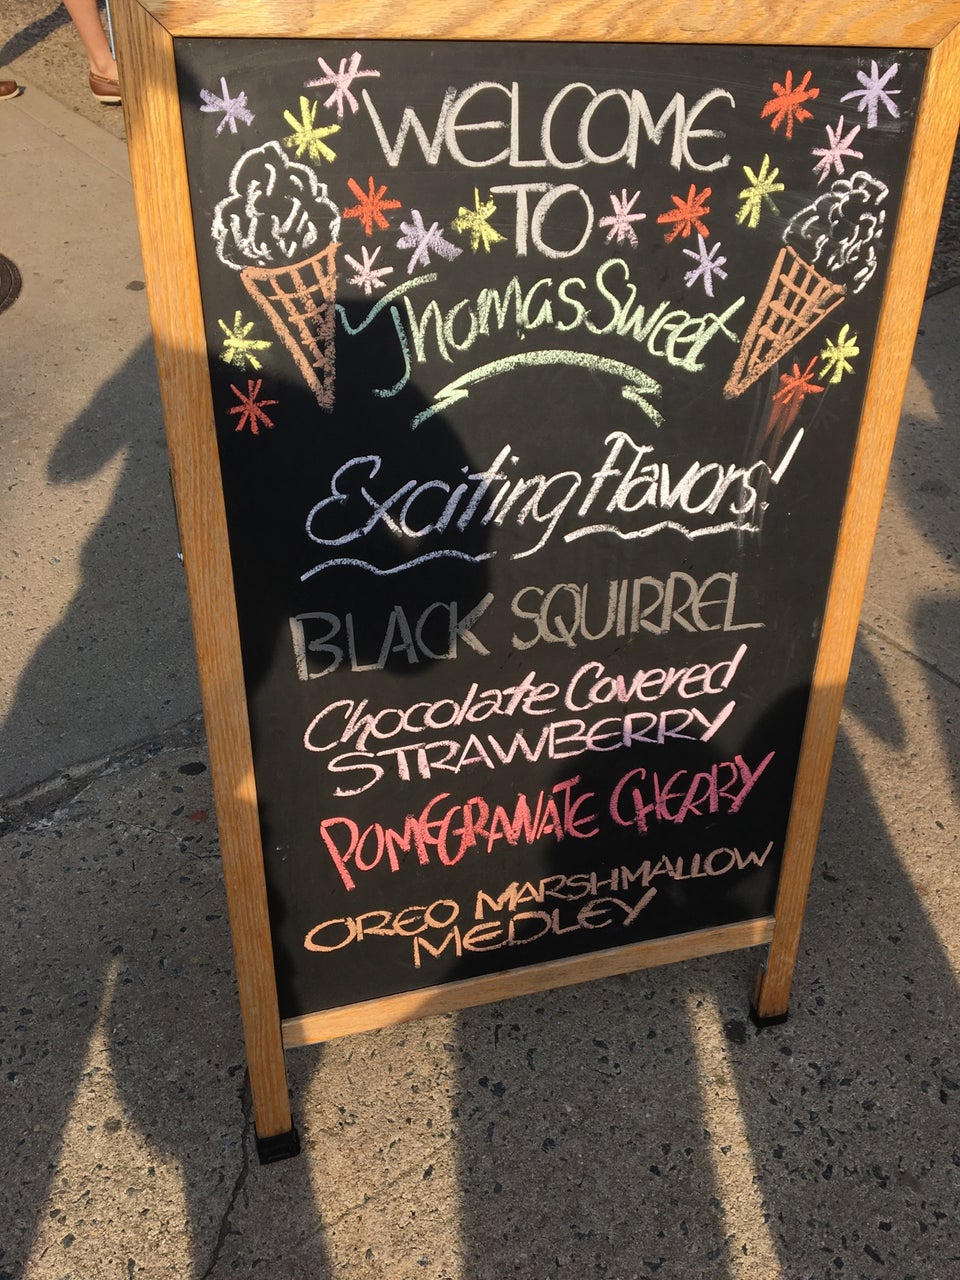 WELCOME
TO
Thomas Sweet
Exciting Flavors!
BLACK SQUIRREL
Chocolate Covered
STRAWBERRY
POMEGRANATE CHERRY
OREO MARSHMALLOW
MEDLEY